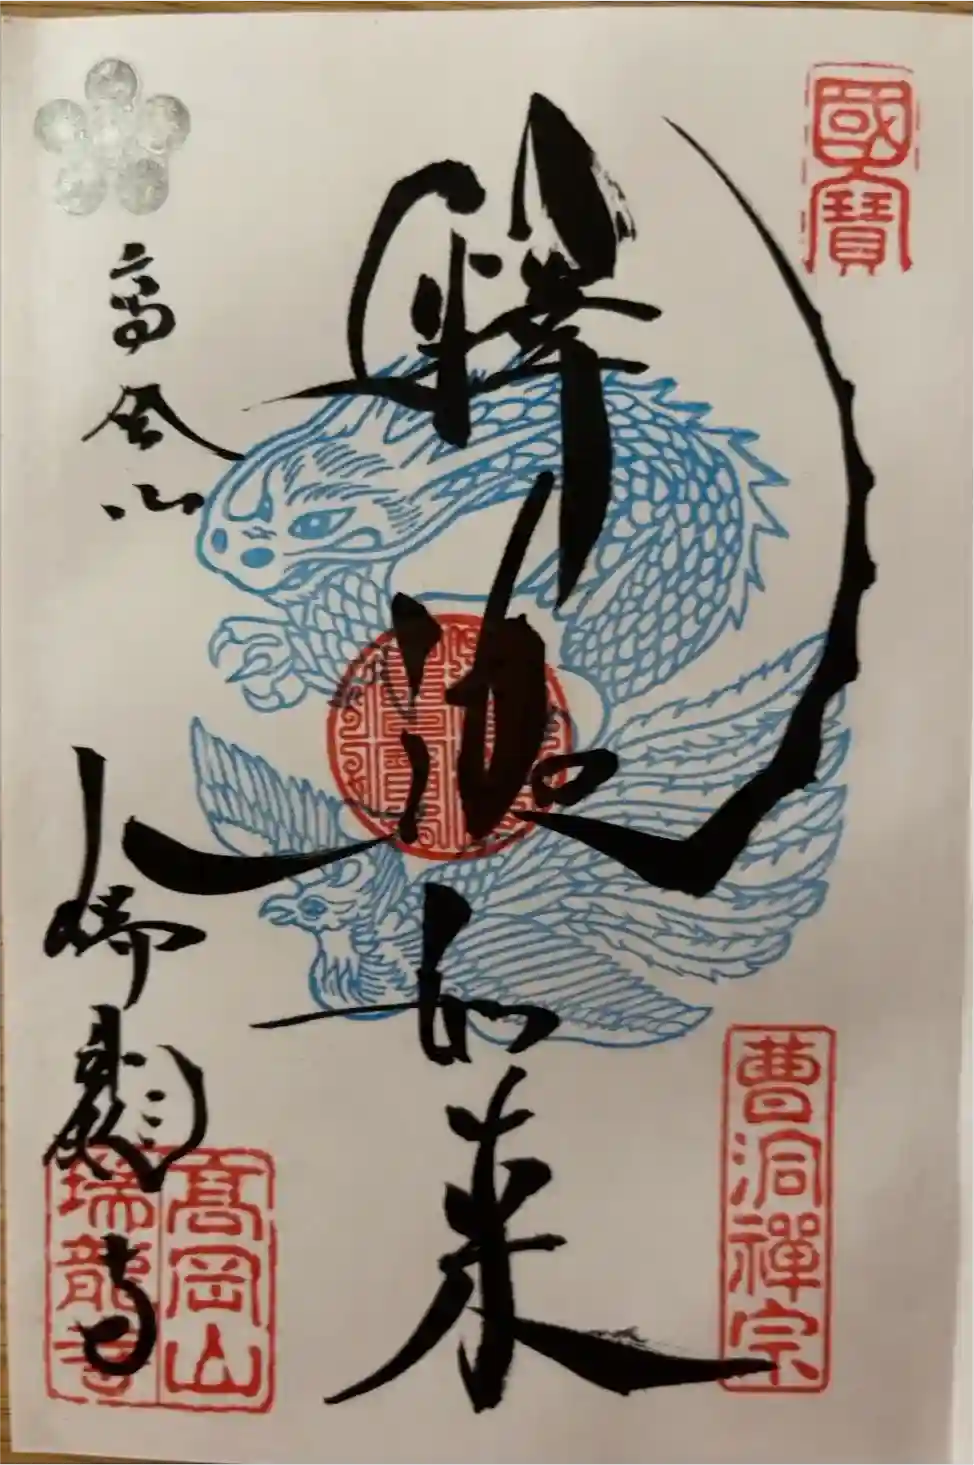 國寶
釋迦如来
曹洞禪宗
高岡山
瑞龍寺
髙岡山
瑞龍寺